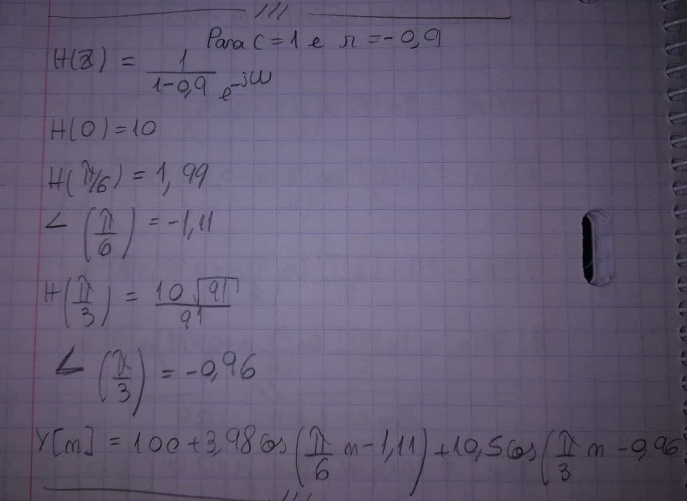 Para C = 1 e r = -0,9
H(z) = 1 / 1-0,9 e^-jω
H(0) = 10
H(π/6) = 1,99
∠ (π/6) = -1,11
H(π/3) = 10√91 / 91
∠ (π/3) = -0,96
Y[n] = 100 + 3,98 cos (π/6 n - 1,11) + 10,5 cos (π/3 n - 0,96